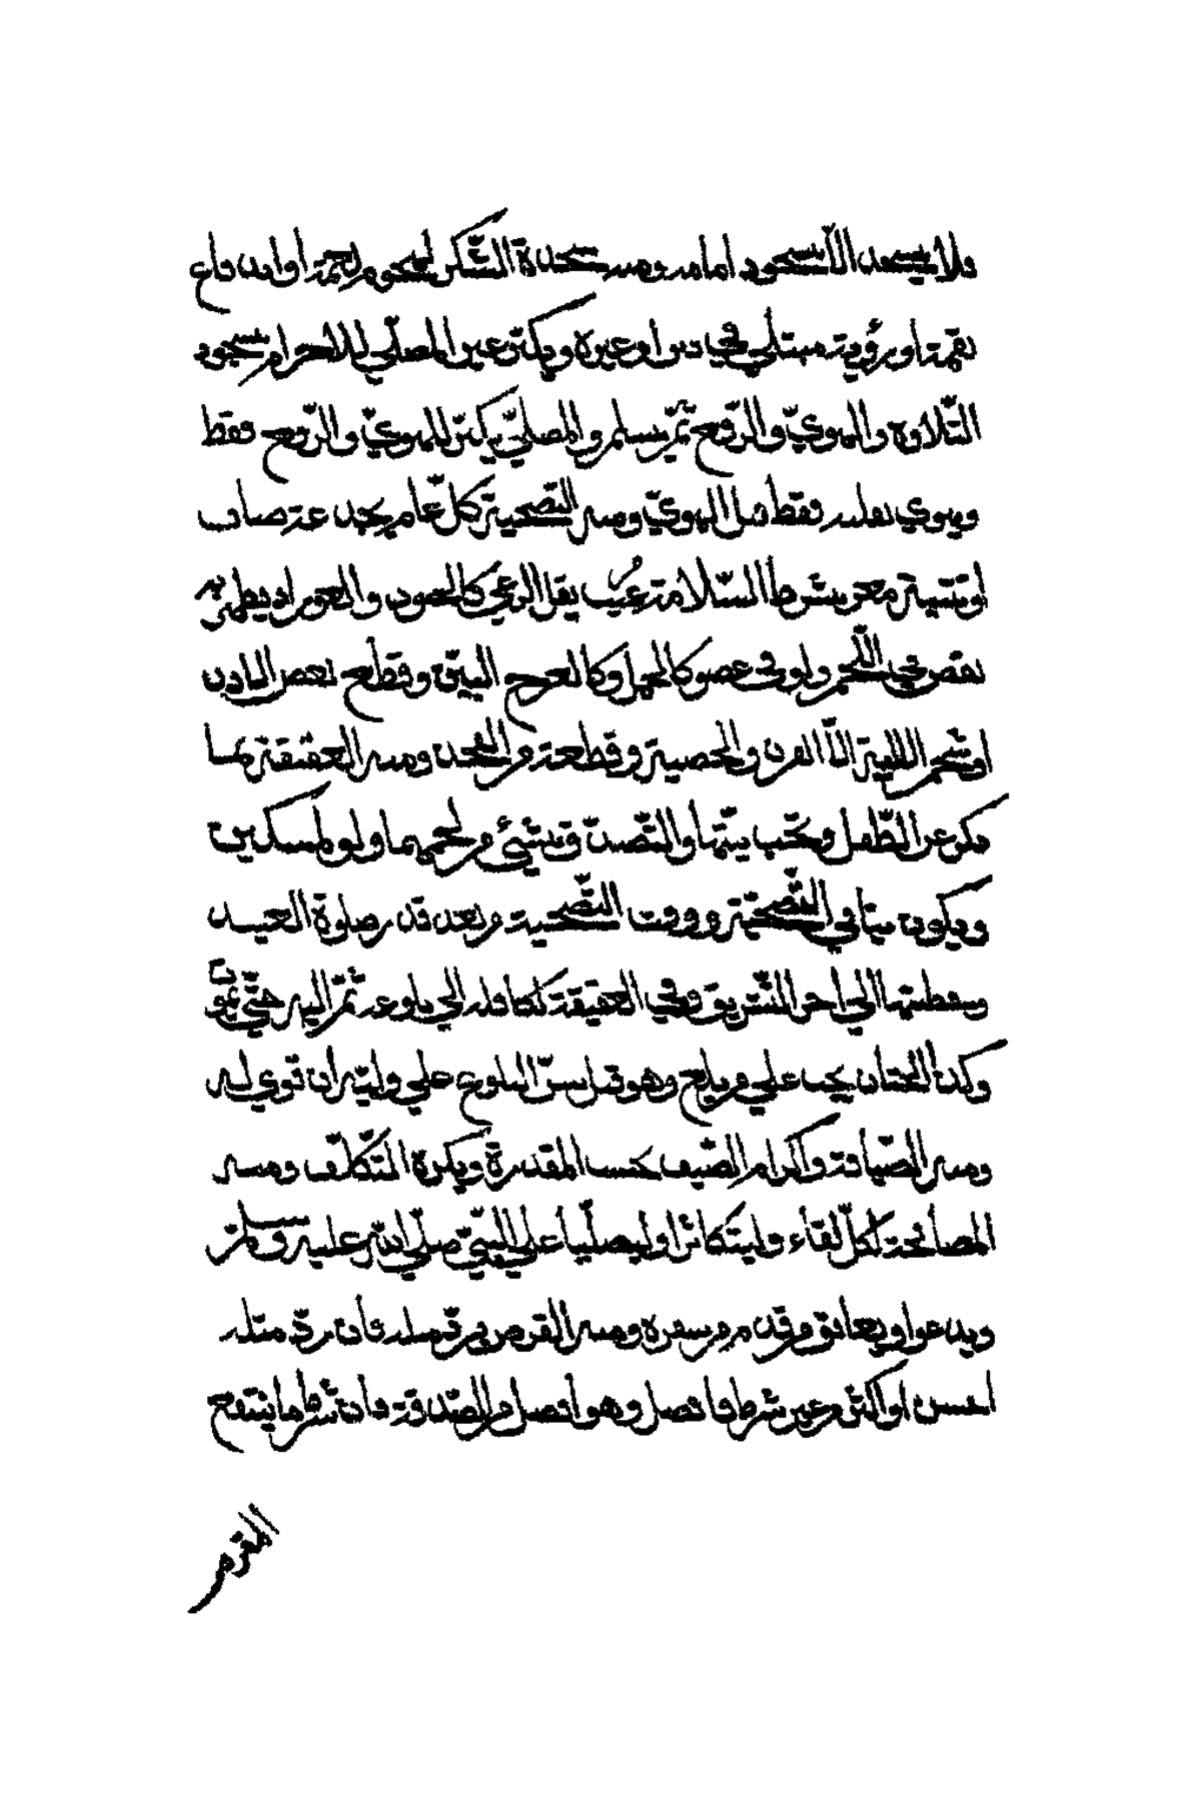 فلا يسجد الّا لسجود امامه وسنّ سجدة الشّكر لهجوم نعمة او اندفاع
نقمة او رؤية مبتلي في بدن او غيره ويكبّر غير المصلّي للاحرام بسجود
التّلاوة والهويّ والرّفع ثمّ يسلم والمصلّي يكبّر للهويّ والرّفع فقط
وينوي بقلبه فقط قبل الهويّ وسنّ التّضحية كلّ عام بجذعة ضأن
او ثنيّة معز بشرط السّلامة عن عيب يقلّ الرعي كالجنون والعور او يظهر به
نقص في اللّحم ولو في عضو كالحمل وكالعرج البيّن وقطع بعض الاذن
او شحم الالية الّا القرن والخصية وقطعة من الفخذ وسنّ العقيقة بهما
فكن عن الطّفل وتجب نيّتها والتّصدّق بشيئ من لحمهما ولو لمسكين
ويكون نيّا في التّضحية ووقت التّضحية من بعد قدر صلوة العيد
وخطبتها الي اخر التّشريق وفي العقيقة كفافله الي بلوغه ثمّ اليه حتّي يموت
وكذا الختان يجب علي من بلغ وهو قبل سنّ البلوغ علي وليّه ان قوي له
وسنّ الضّيافة واكرام الضّيف بحسب المقدرة ويكره التّكلّف وسنّ
المصافحة لكلّ لقاء وليتكاثرا وليصلّيا علي النّبيّ صلّي اللّه عليه وسلّم
ويدعوا ويعانق من قدم من سفره وسنّ القرض بردّ مثله فان ردّ مثله
احسن او اكثر من غير شرط فافضل وهو افضل من الصّدقة فان شرط ما ينتفع
المقرض